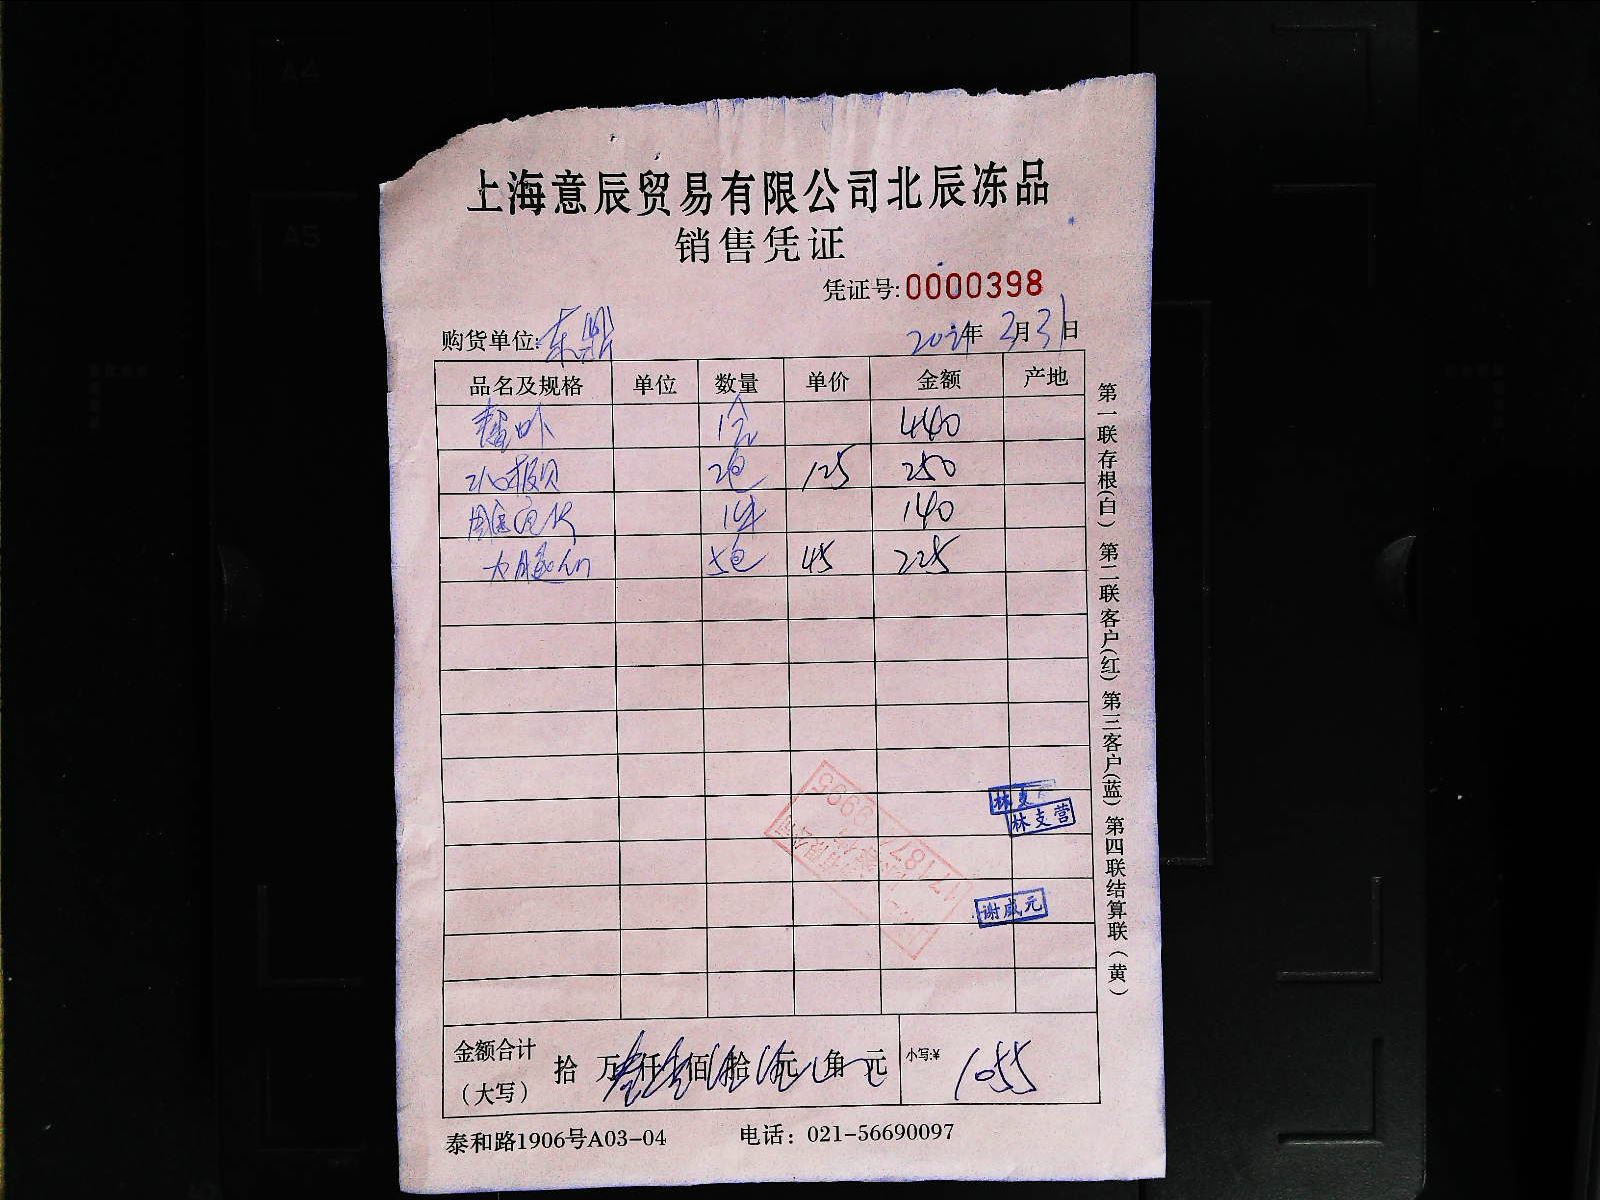 上海意辰贸易有限公司北辰冻品
销售凭证
凭证号:0000398
购货单位:东鼎 年3月31日
品名及规格 单位 数量 单价 金额 产地
440
2包 125 250
140
5包 45 225
林支
林支营
谢咸元
金额合计(大写) 拾 万 仟 佰 拾 元 角 元 小写:¥ 1055
泰和路1906号A03-04 电话：021-56690097
第一联存根(白) 第二联客户(红) 第三客户(蓝) 第四联结算联(黄)